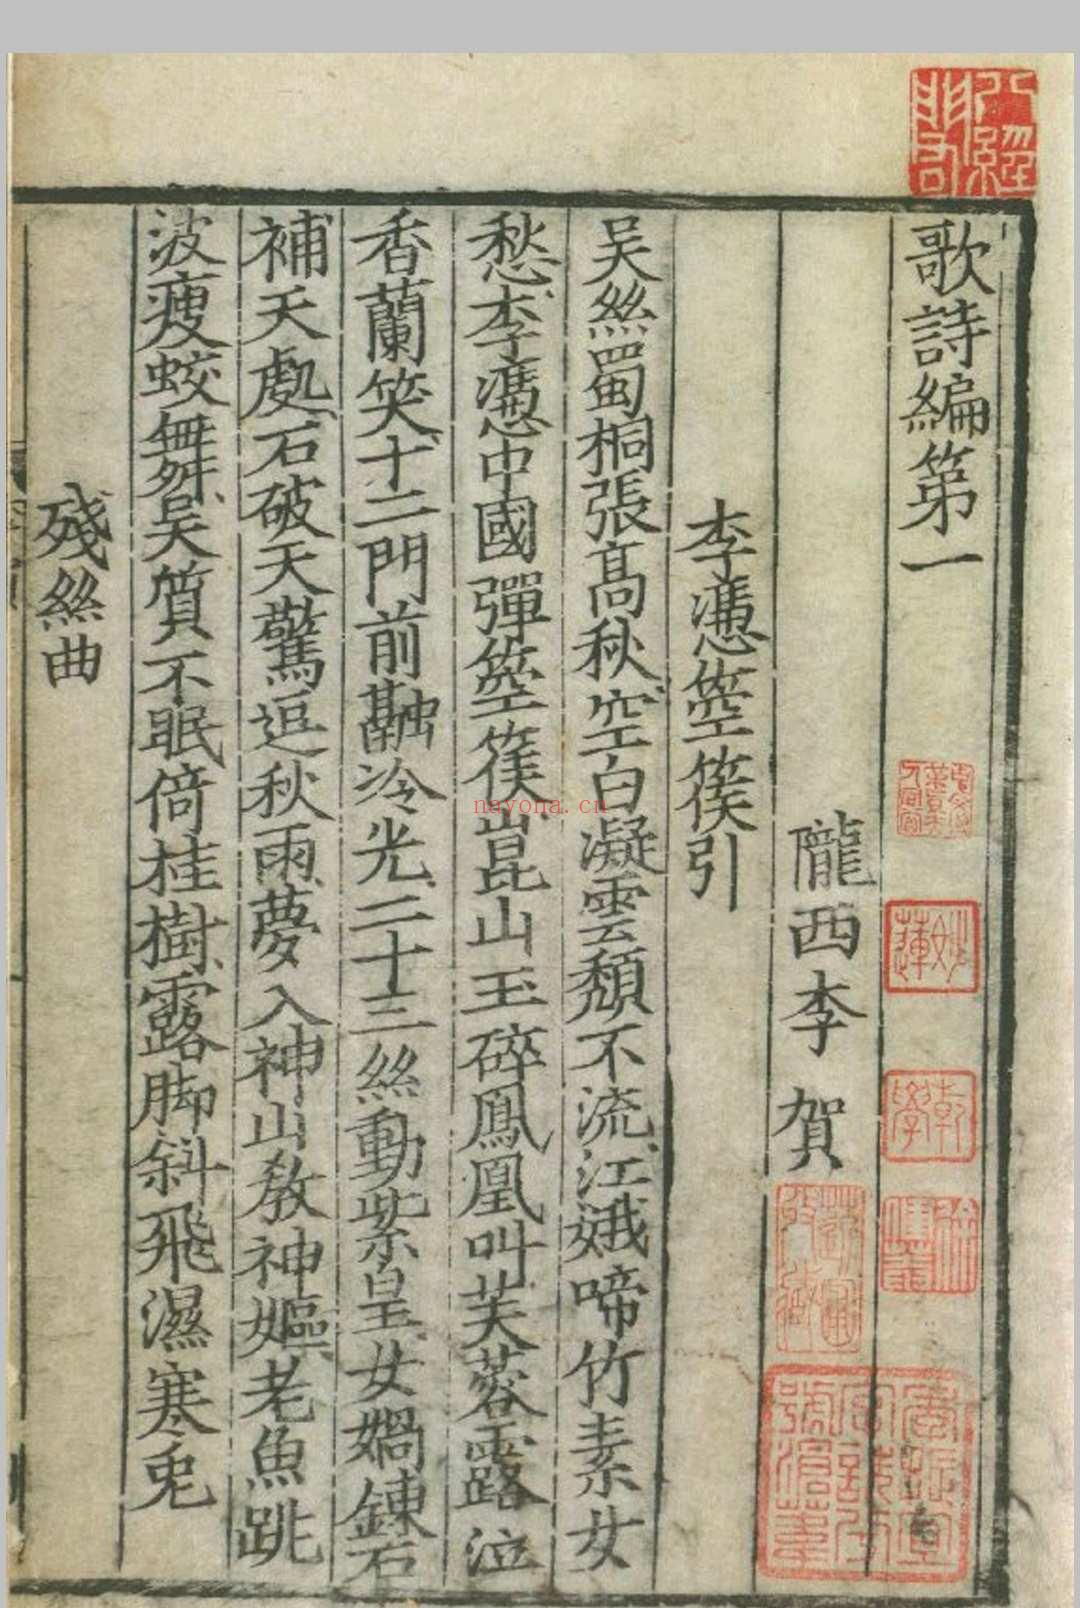 歌詩編第一
隴西李賀
李憑箜篌引
吴絲蜀桐張髙秋空白凝雲頹不流江娥啼竹素女
愁李憑中國彈箜篌崑山玉碎鳳凰叫芙蓉露泣
香蘭笑十二門前融冷光二十三絲動紫皇女媧鍊石
補天處石破天驚逗秋雨夢入神山教神嫗老魚跳
波瘦蛟舞吴質不眠倚桂樹露脚斜飛濕寒兎
殘絲曲
nayona.cn